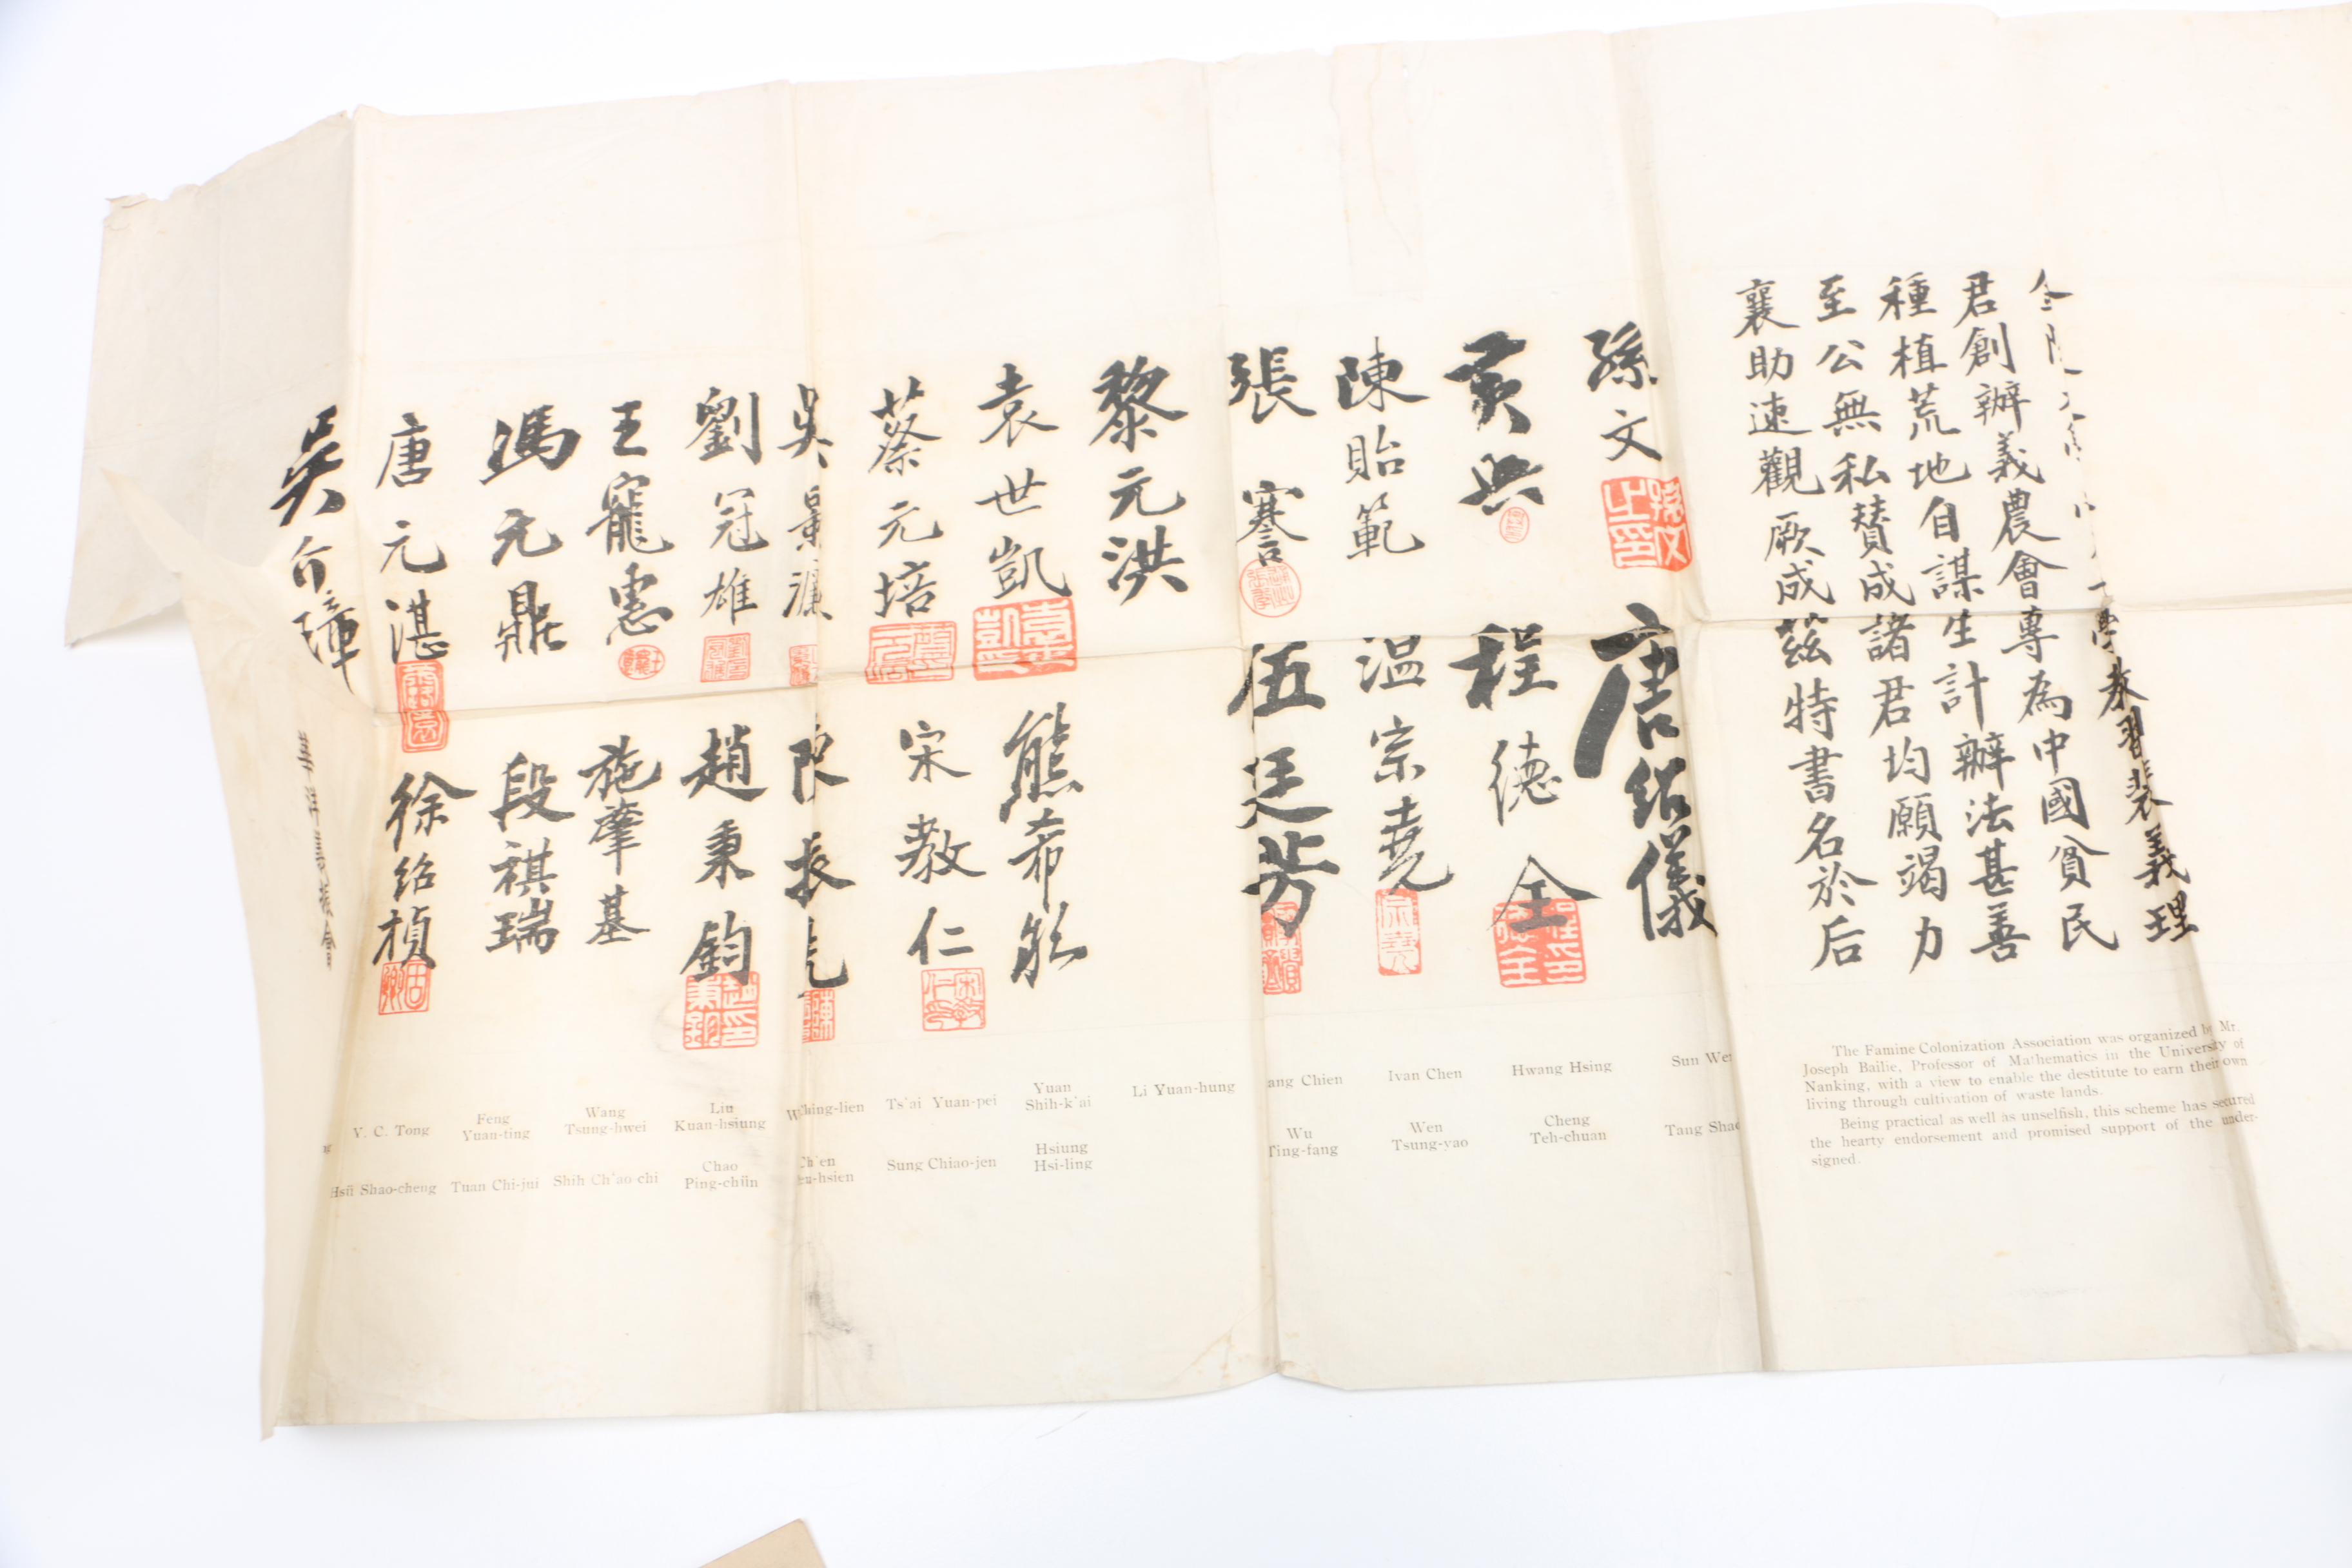 學教習裴義理
君創辦義農會專為中國貧民
種植荒地自謀生計辦法甚善
至公無私贊成諸君均願竭力
襄助速觀厥成茲特書名於后
孫文
唐紹儀
黃興
程德全
陳貽範
温宗堯
張謇
伍廷芳
黎元洪
袁世凱
熊希齡
蔡元培
宋教仁
吳景濂
陳振先
劉冠雄
趙秉鈞
王寵惠
施肇基
馮元鼎
段祺瑞
唐元湛
徐紹楨
吳介璋
華洋義振會
The Famine Colonization Association was organized by Mr.
Joseph Bailie, Professor of Mathematics in the University of
Nanking, with a view to enable the destitute to earn their own
living through cultivation of waste lands.
Being practical as well as unselfish, this scheme has secured
the hearty endorsement and promised support of the under-
signed.
Y. C. Tong
Feng
Yuan-ting
Wang
Tsung-hwei
Liu
Kuan-hsiung
Ching-lien
Ts'ai Yuan-pei
Yuan
Shih-k'ai
Li Yuan-hung
ang Chien
Ivan Chen
Hwang Hsing
Sun We
Hsü Shao-cheng
Tuan Chi-jui
Shih Ch'ao-chi
Chao
Ping-chün
Ch'en
-hsien
Sung Chiao-jen
Hsiung
Hsi-ling
Wu
Ting-fang
Wen
Tsung-yao
Cheng
Teh-chuan
Tang Shao